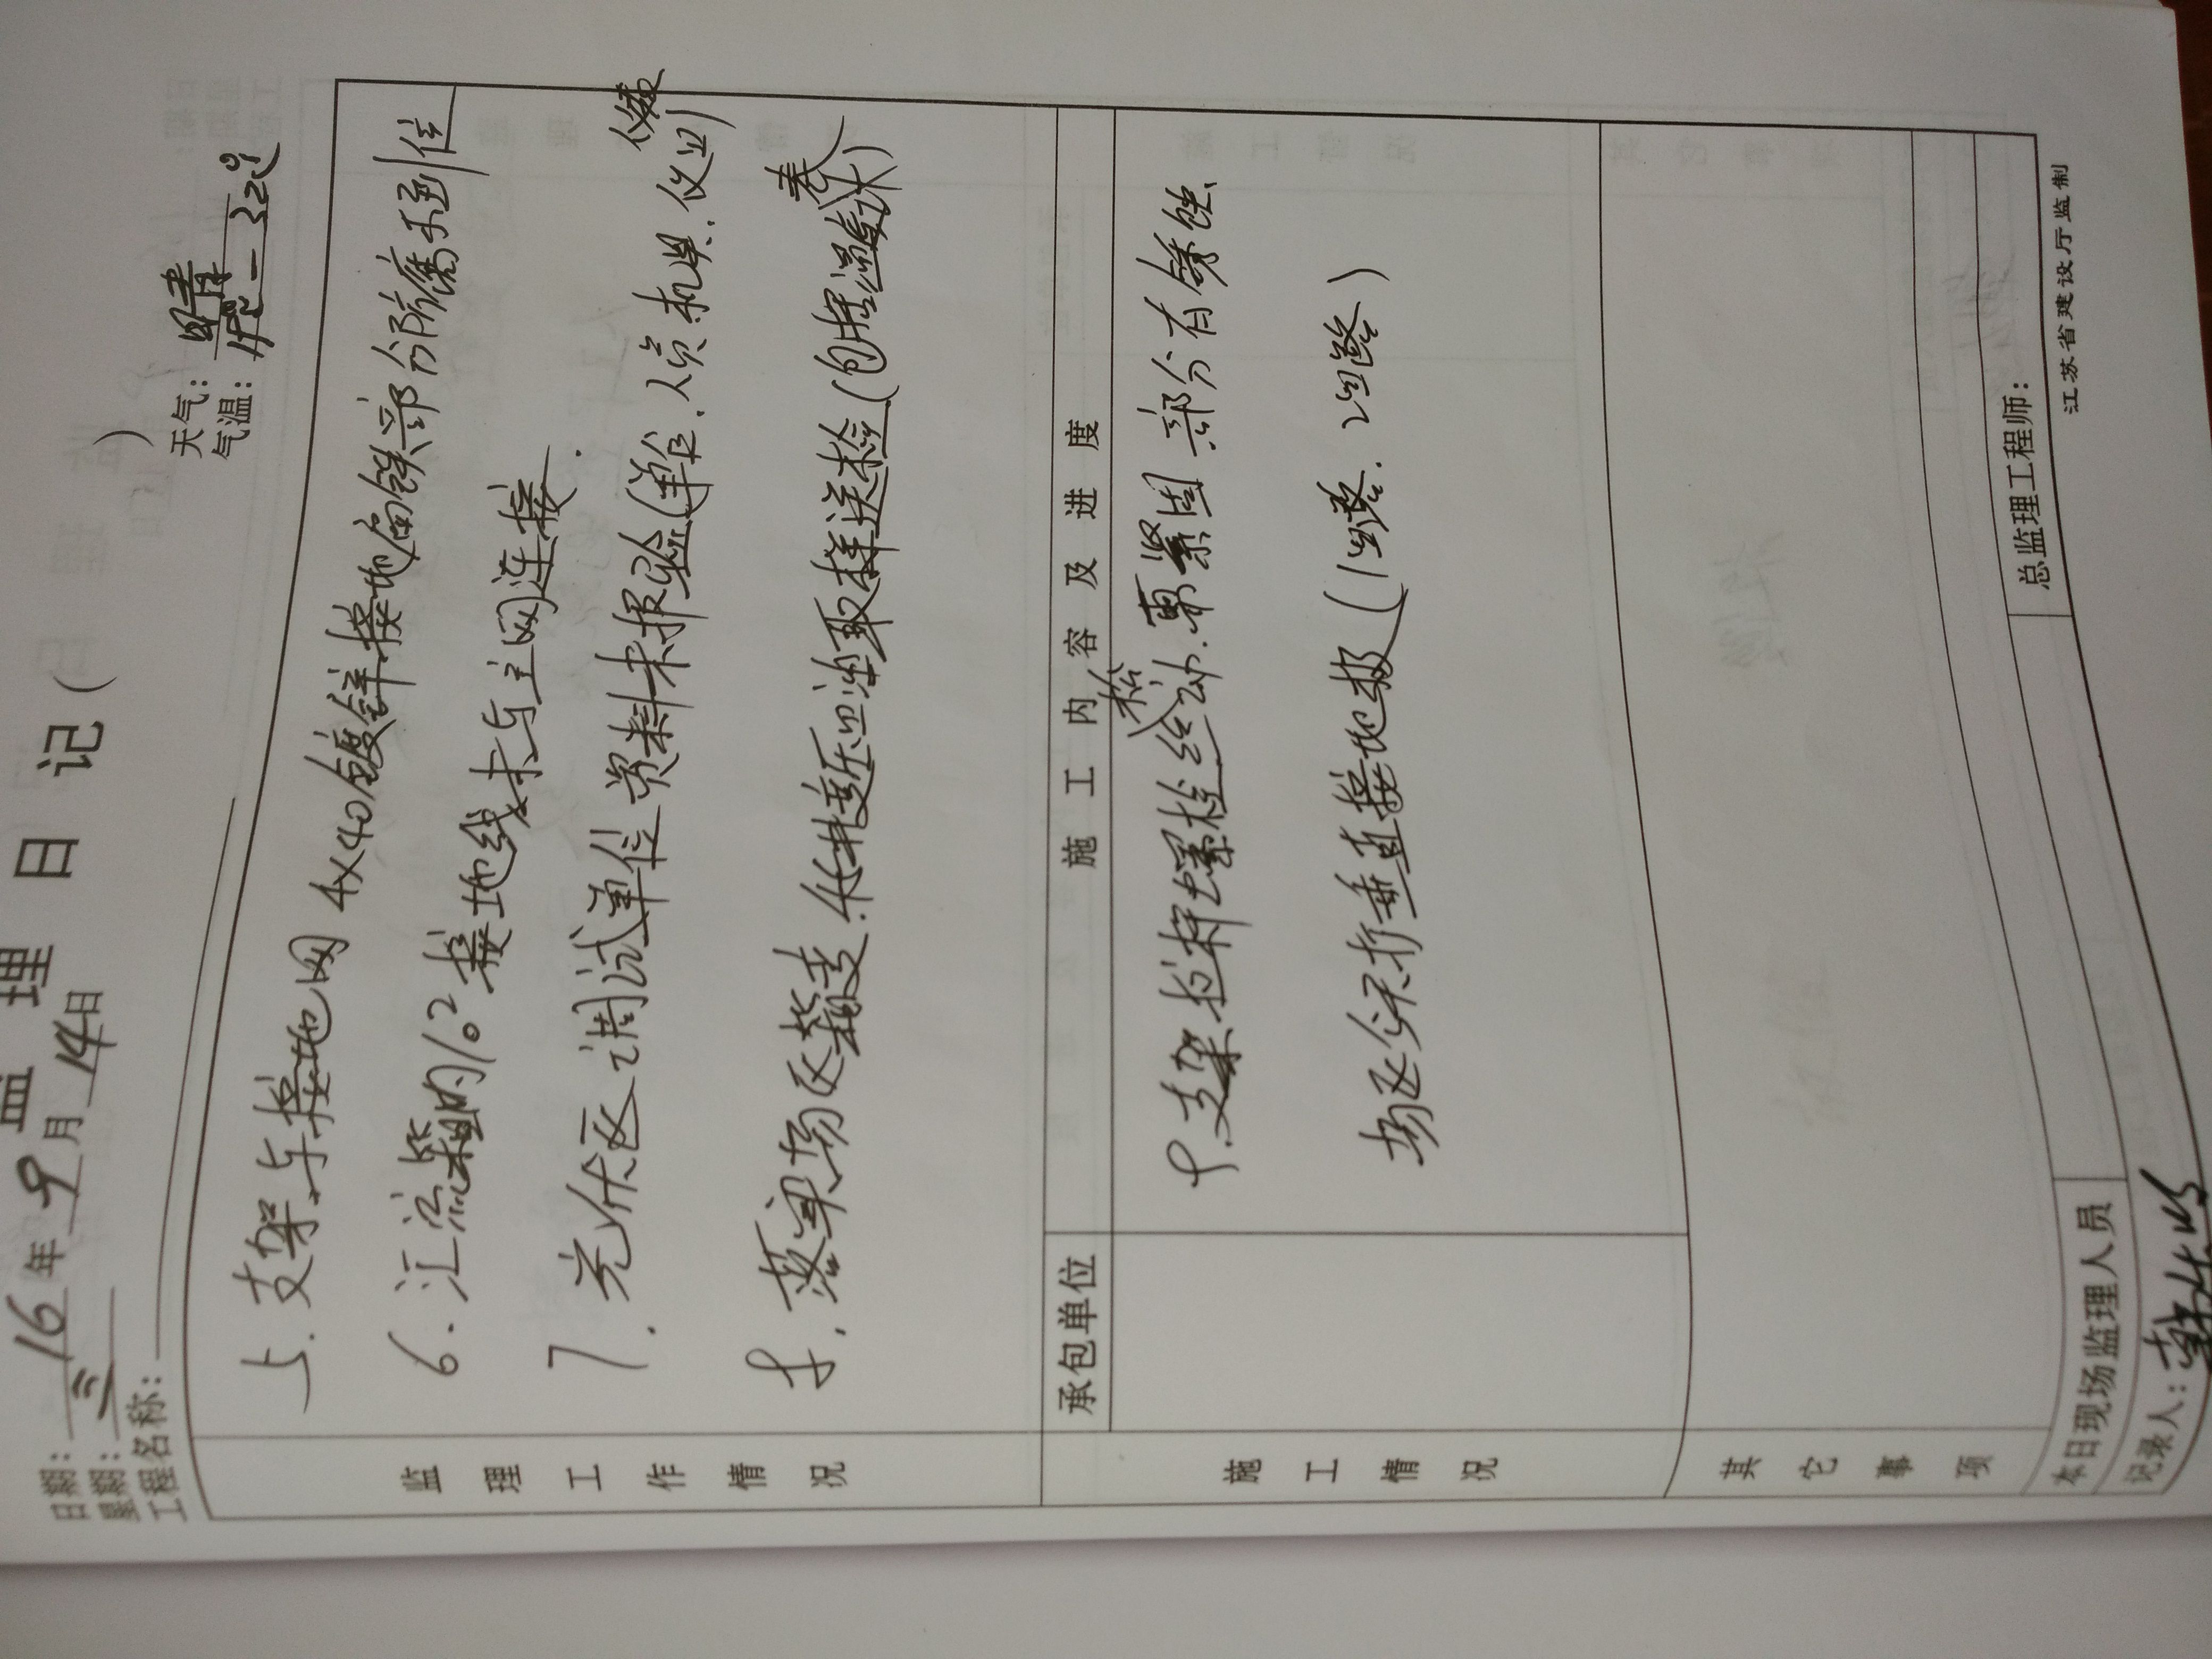 监理日记（　）
日期：16年9月14日 天气：晴
星期：三 气温：
工程名称：
监理工作情况
5.支架与接地网4×40镀锌接地扁铁部分防腐不到位
6.汇流箱的16²接地线未与主网连接.
7.光伏区调试单位资料未报验(单位.人员.机具.仪器仪表)
8.落实场区箱变.压油取样送检(包括温
承包单位 施工内容及进度
施工情况
9.支架拉杆螺栓松动.需紧固 部分有锈蚀
场区多未打垂直接地极
其它事项
本日现场监理人员 总监理工程师：
记录人：
江苏省建设厅监制